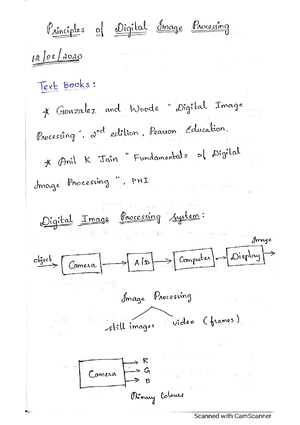 Principles of Digital Image Processing
12/08/2020
Text Books :
* Gonzalez and Woods " Digital Image
Processing", 2nd edition, Pearson Education.
* Anil K Jain " Fundamentals of Digital
Image Processing ", PHI
Digital Image Processing System :
object Camera A/D Computer Display Image
Image Processing
still images video (frames)
Camera R
G
B
Primary Colours
Scanned with CamScanner